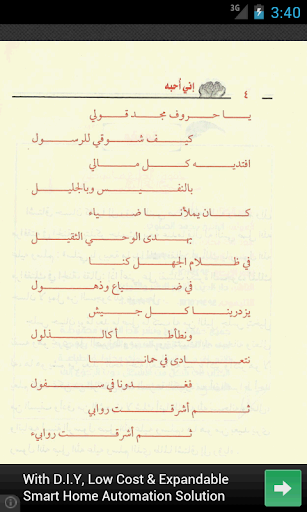 3G 3:40
إني أحبه ٤
يا حروف مجد قولي
كيف شوقي للرسول
افتديه كل مالي
بالنفيس وبالجليل
كان يملأنا ضياء
بهدى الوحي الثقيل
في ظلام الجهل كنا
في ضياع وذهول
يزدرينا كل جيش
ونطأطأ كالذلول
نتعادى في حمانا
فغدونا في سفول
ثم أشرقت روابي
ثم أشرقت روابيء
With D.I.Y, Low Cost & Expandable
Smart Home Automation Solution